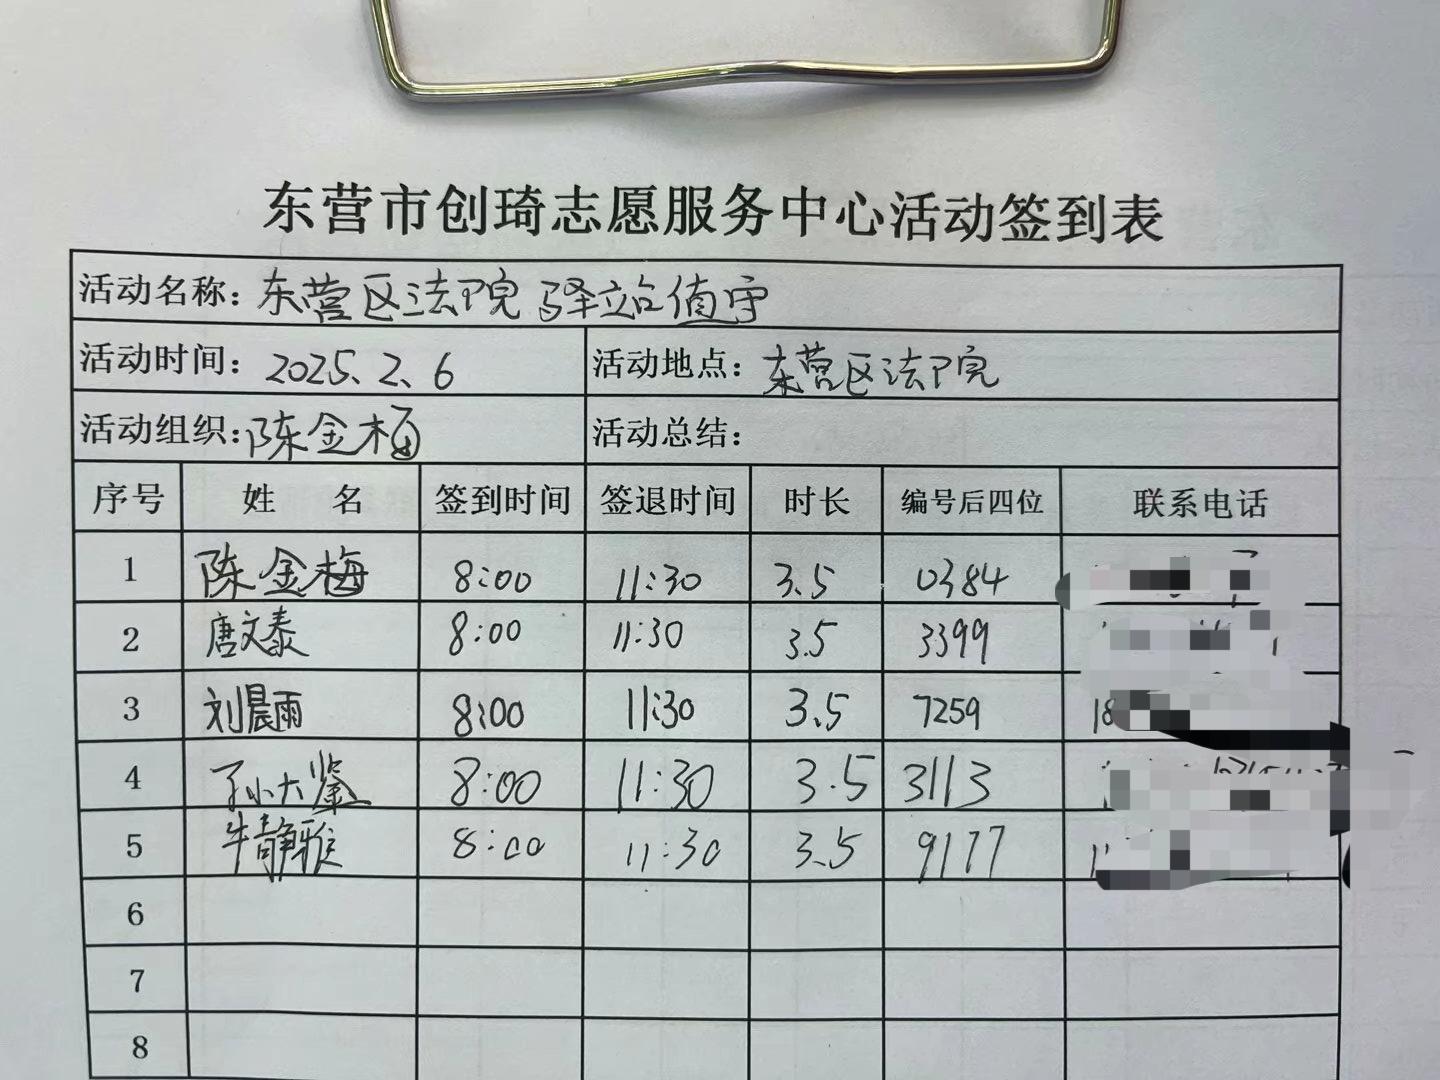 东营市创琦志愿服务中心活动签到表
活动名称：东营区法院驿站值守
活动时间：2025.2.6 活动地点：东营区法院
活动组织：陈金梅 活动总结：
序号 姓 名 签到时间 签退时间 时长 编号后四位 联系电话
1 陈金梅 8:00 11:30 3.5 0384
2 唐文泰 8:00 11:30 3.5 3399
3 刘晨雨 8:00 11:30 3.5 7259 18
4 孙大鉴 8:00 11:30 3.5 3113
5 牛静雅 8:00 11:30 3.5 9177
6
7
8